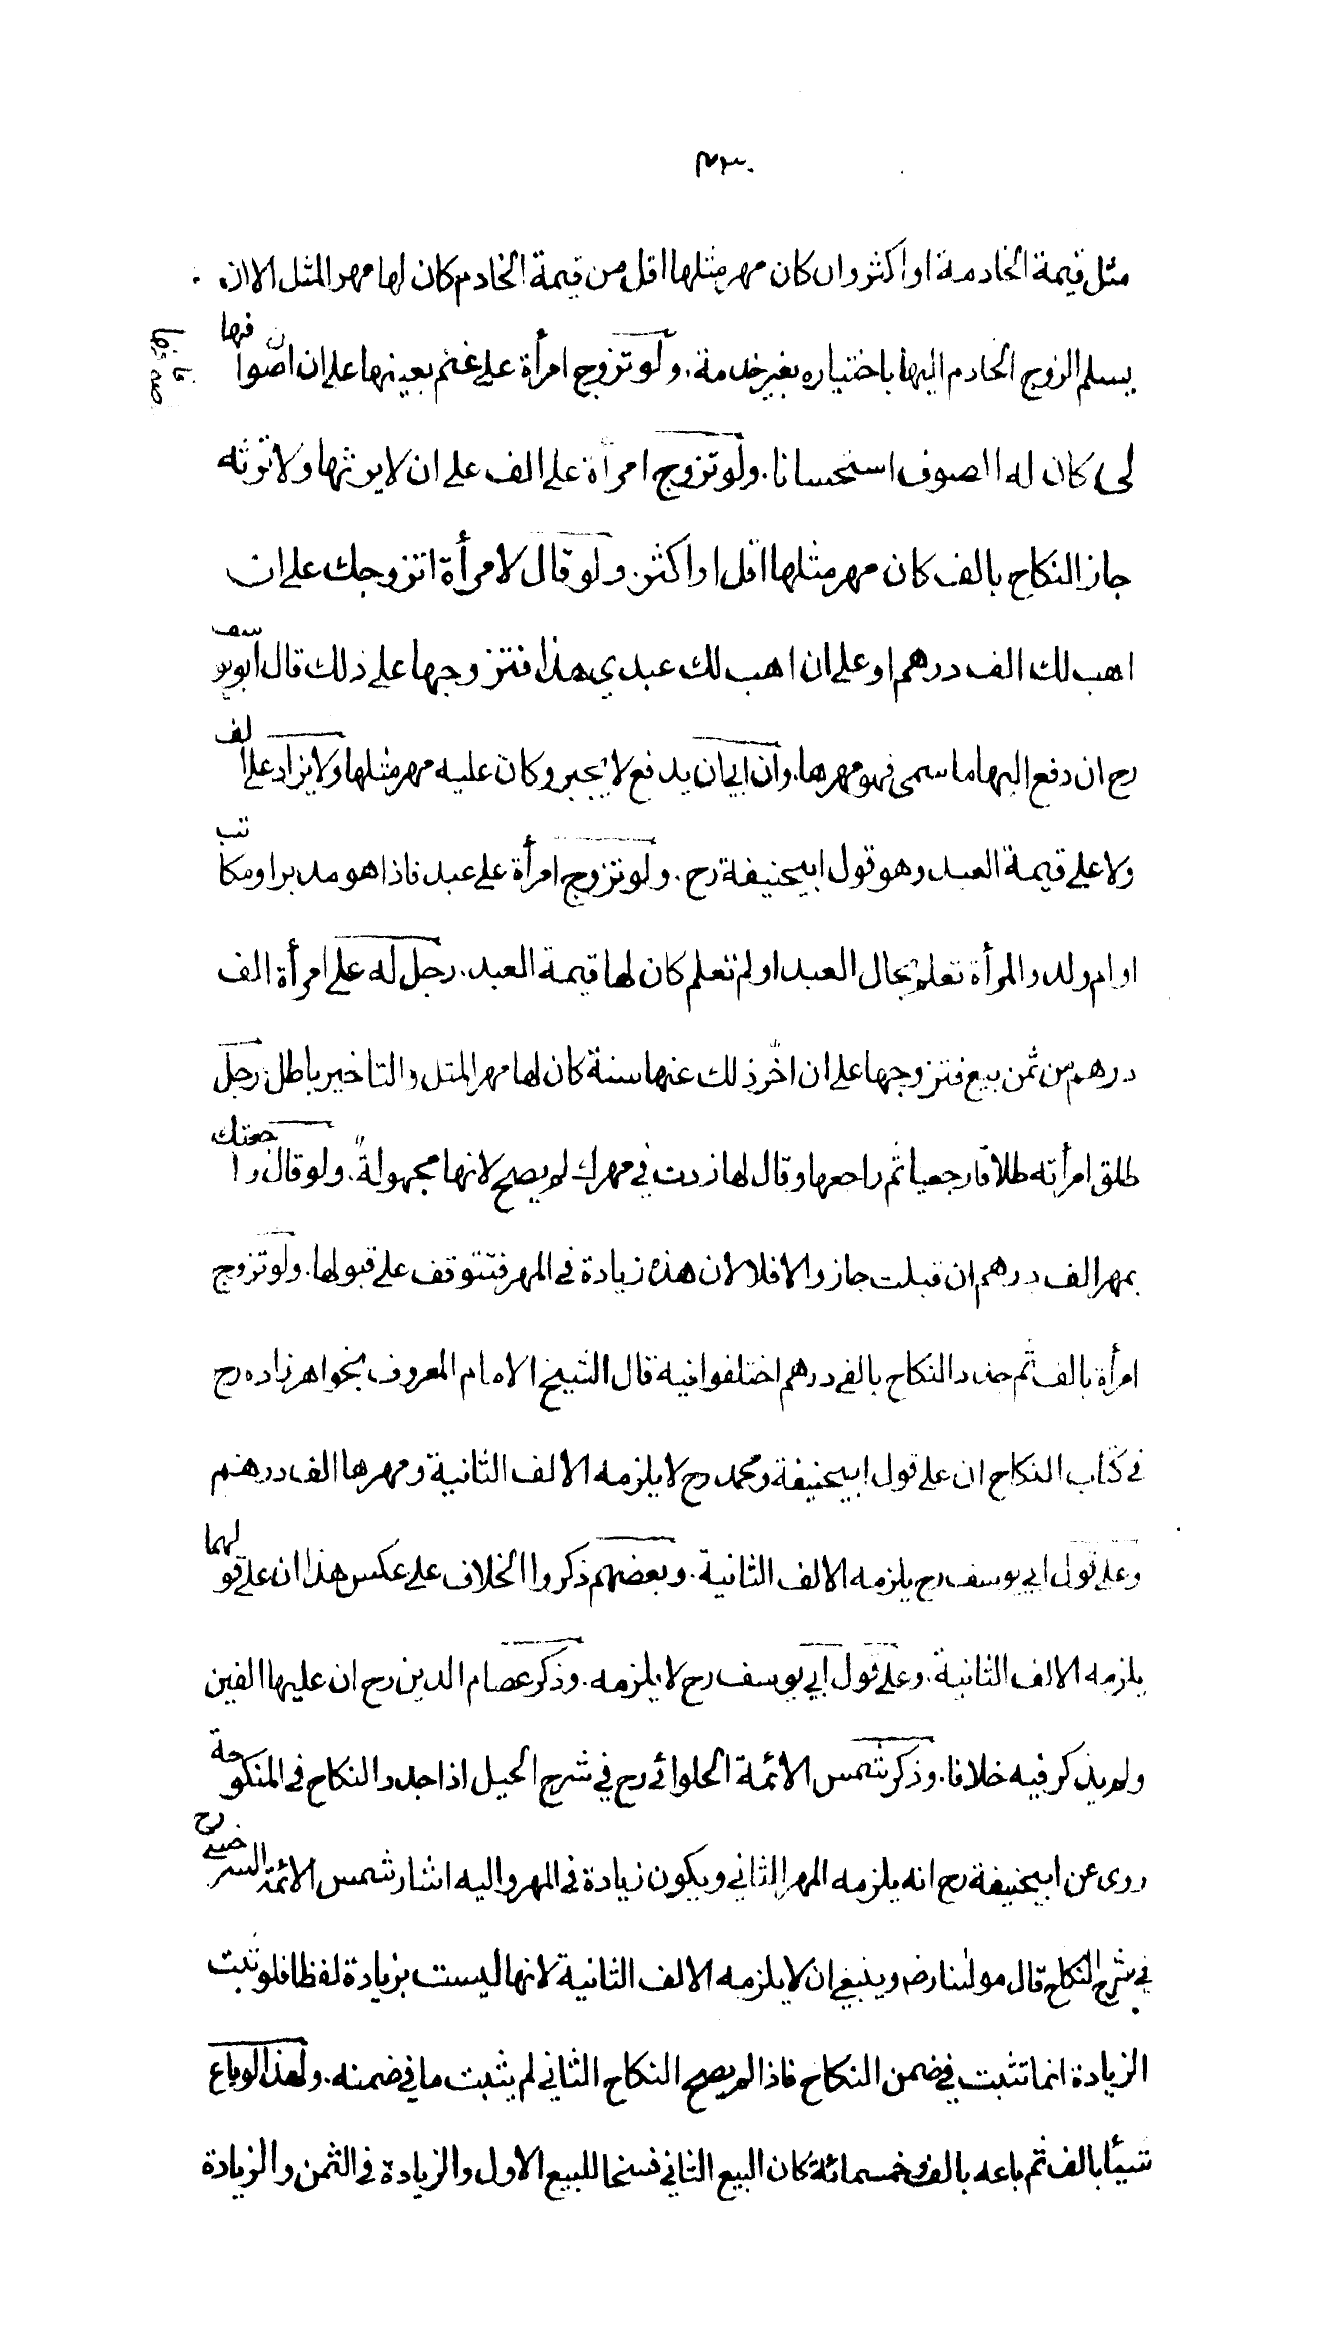 مثل قيمة الخادمة او اكثر وان كان مهر مثلها اقل من قيمة الخادم كان لها مهر المثل الا ان
يسلم الزوج الخادم اليها باختياره بغير خدمة. ولو تزوج امرأة على غنم بعينها على ان اصوافها
لى كان له الصوف استحسانا. ولو تزوج امرأة على الف على ان لا يرثها ولا ترثه
جاز النكاح بالف كان مهر مثلها اقل او اكثر. ولو قال لامرأة اتزوجك على ان
اهب لك الف درهم او على ان اهب لك عبدي هذا فتزوجها على ذلك قال ابو يوسف
رح ان دفع اليها ما سمى فهو مهرها. وان ابى ان يدفع لا يجبر وكان عليه مهر مثلها ولا يزاد على الف
ولا على قيمة العبد وهو قول ابيحنيفة رح. ولو تزوج امرأة على عبد فاذا هو مدبر او مكاتب
او ام ولد والمرأة تعلم بحال العبد او لم تعلم كان لها قيمة العبد. رجل له على امرأة الف
درهم من ثمن بيع فتزوجها على ان اخّر ذلك عنها سنة كان لها مهر المثل والتاخير باطل. رجل
طلق امرأته طلاقا رجعيا ثم راجعها وقال لها زدت في مهرك لم يصح لانها مجهولة. ولو قال راجعتك
بمهر الف درهم ان قبلت جاز والا فلا لان هذه زيادة في المهر فتتوقف على قبولها. ولو تزوج
امرأة بالف ثم جدد النكاح بالفي درهم اختلفوا فيه قال الشيخ الامام المعروف بخواهرزاده رح
في كتاب النكاح ان على قول ابيحنيفة ومحمد رح لا يلزمه الالف الثانية ومهرها الف درهم
وعلى قول ابي يوسف رح يلزمه الالف الثانية. وبعضهم ذكروا الخلاف على عكس هذا ان على قولهما
يلزمه الالف الثانية. وعلى قول ابي يوسف رح لا يلزمه. وذكر عصام الدين رح ان عليها الفين
ولم يذكر فيه خلافا. وذكر شمس الائمة الحلوائي رح في شرح الحيل اذا جدد النكاح في المنكوحة
روى عن ابيحنيفة رح انه يلزمه المهر الثاني ويكون زيادة في المهر واليه اشار شمس الائمة السرخسي رح
في شرح النكاح قال مولنا رضه وينبغي ان لا يلزمه الالف الثانية لانها ليست بزيادة لفظا فلو تثبت
الزيادة انما تثبت في ضمن النكاح فاذا لم يصح النكاح الثاني لم يثبت ما في ضمنه. ولهذا لو باع
شيأ بالف ثم باعه بالف وخمسمائة كان البيع الثاني فسخا للبيع الاول والزيادة في الثمن والزيادة